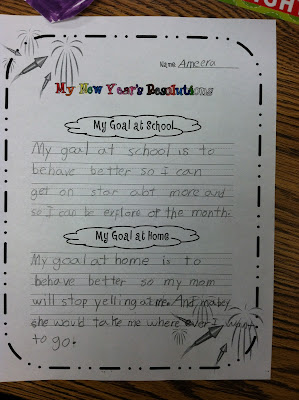 Name Ameera
My New Year's Resolutions
My Goal at School
My goal at school is to
behave better so I can
get on star abt more and
so I can be explore of the month.
My Goal at Home
My goal at home is to
behave better so my mom
will stop yelling at me. And mabey
she would take me where ever I want
to go.